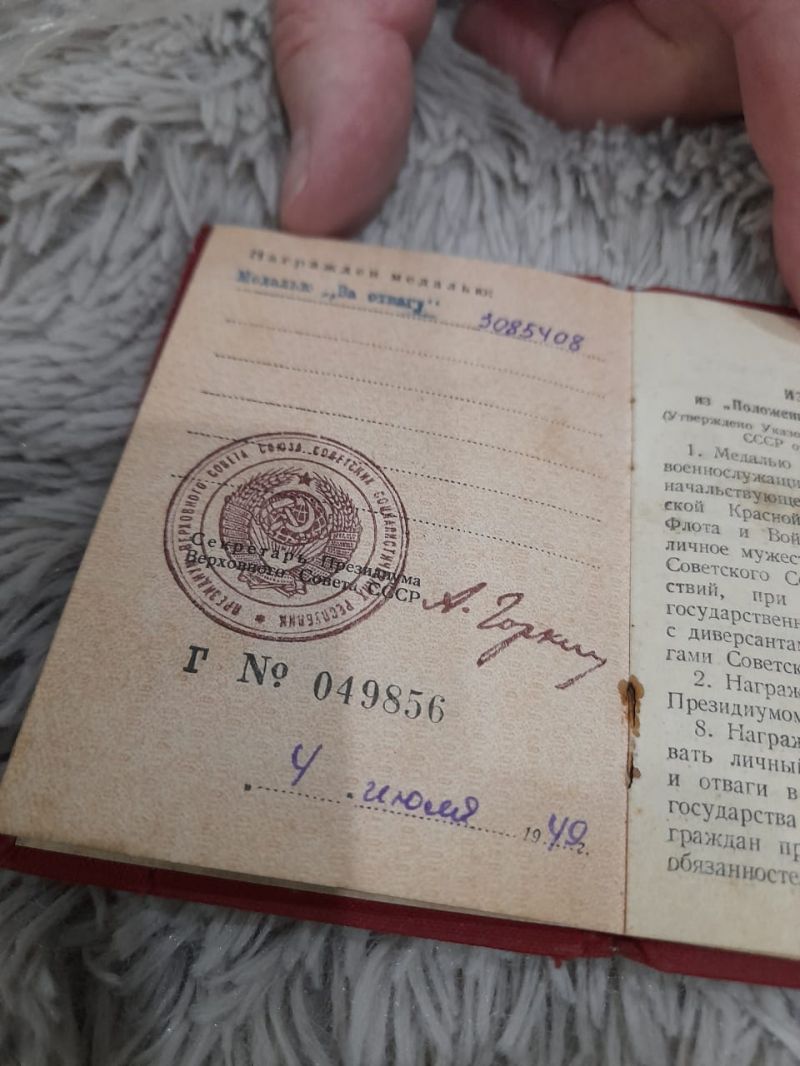 Награжден медалью:
Медалью „За отвагу“ 3085408
ПРЕЗИДИУМ ВЕРХОВНОГО СОВЕТА СОЮЗА СОВЕТСКИХ СОЦИАЛИСТИЧЕСКИХ РЕСПУБЛИК
Секретарь Президиума
Верховного Совета СССР А. Горкин
Г № 049856
4 июля 1949 г.
из „Положени
(Утверждено Указо
СССР о
1. Медалью
военнослужащи
начальствующе
ской Красной
Флота и Вой
личное мужес
Советского С
ствий, при
государственн
с диверсанта
гами Советск
2. Награж
Президиумом
8. Награж
вать личный
и отваги в
государства
граждан пр
обязанносте